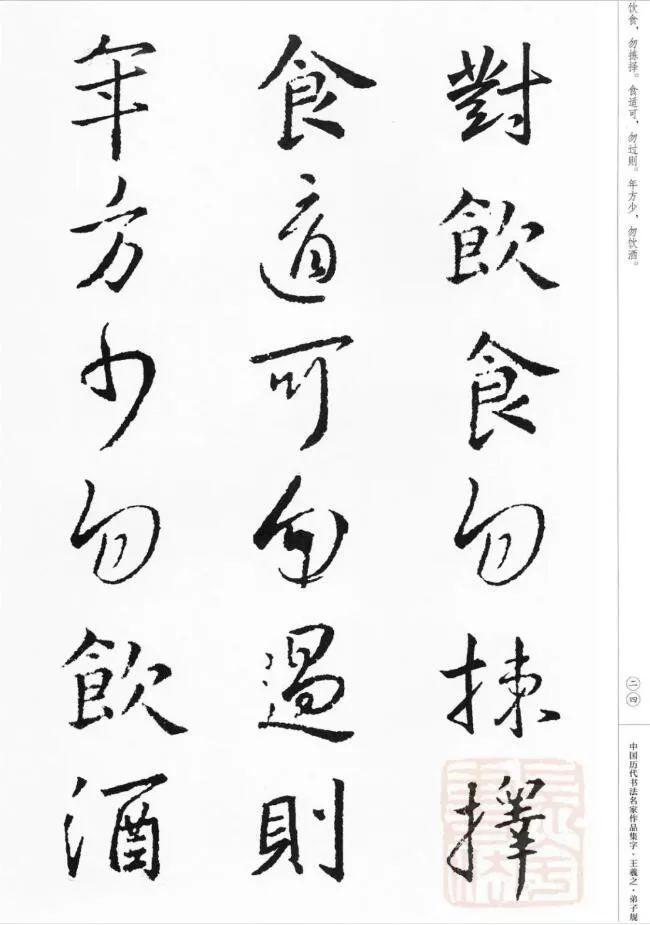 對飲食勿揀擇
食適可勿過則
年方少勿飲酒
饮食，勿拣择。食适可，勿过则。年方少，勿饮酒。
二四
中国历代书法名家作品集字·王羲之·弟子规